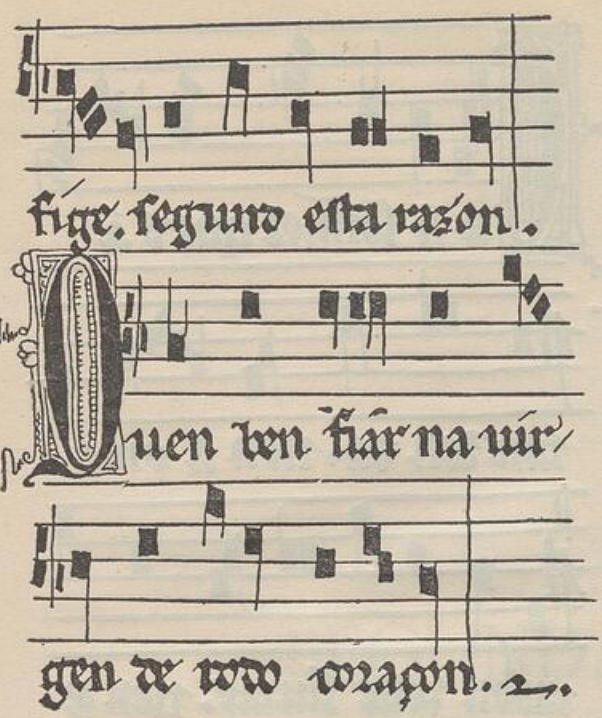 fige. segund esta razon.
Quen ben fiar na uir/
gen de todo coraçon.